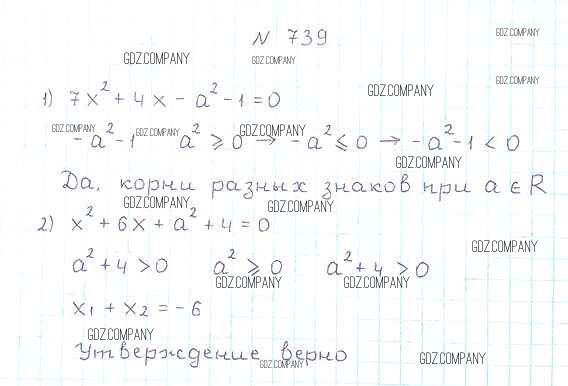 N 739
GDZ.COMPANY
GDZ.COMPANY GDZ.COMPANY
GDZ.COMPANY
GDZ.COMPANY
1) 7x² + 4x - a² - 1 = 0
GDZ.COMPANY GDZ.COMPANY GDZ.COMPANY
- a² - 1 a² ⩾ 0 → - a² ⩽ 0 → - a² - 1 < 0
GDZ.COMPANY
Да, корни разных знаков при a ∈ R
GDZ.COMPANY GDZ.COMPANY
2) x² + 6x + a² + 4 = 0
GDZ.COMPANY
a² + 4 > 0 a² ⩾ 0 a² + 4 > 0
GDZ.COMPANY GDZ.COMPANY
x₁ + x₂ = - 6
GDZ.COMPANY
Утверждение верно
GDZ.COMPANY GDZ.COMPANY